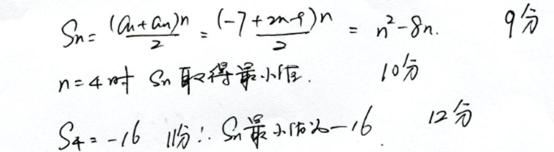 Sn = (a1+an)n/2 = (-7+2n-9)n/2 = n²-8n. 9分
n=4时 Sn取得最小值. 10分
S4=-16 11分∴Sn最小值为-16. 12分